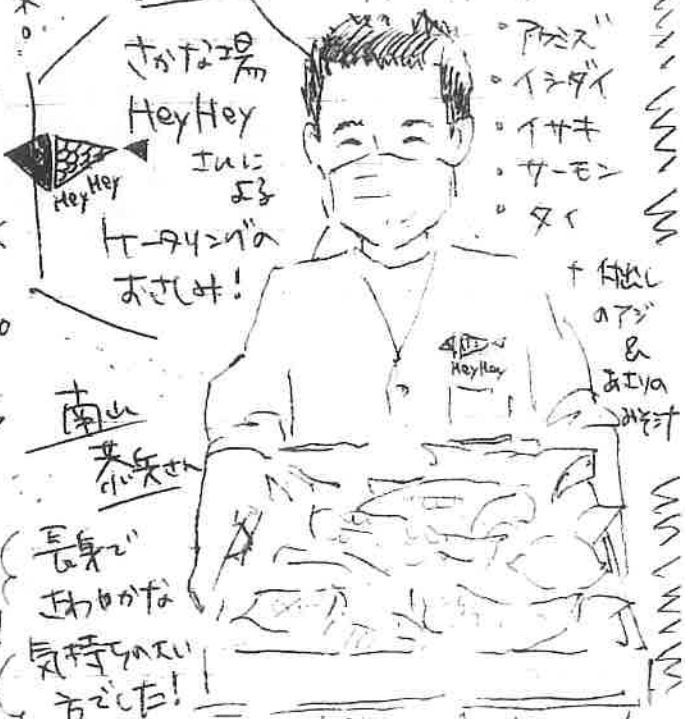 さかな工場
HeyHey
さんに
よる
ケータリングの
おさしみ！
HeyHey
・イシダイ
・イサキ
・サーモン
・タイ
+ 仕出し
のアジ
&
あさりの
みそ汁
HeyHey
南山
恭兵さん
長身で
さわやかな
気持ちのよい
方でした！